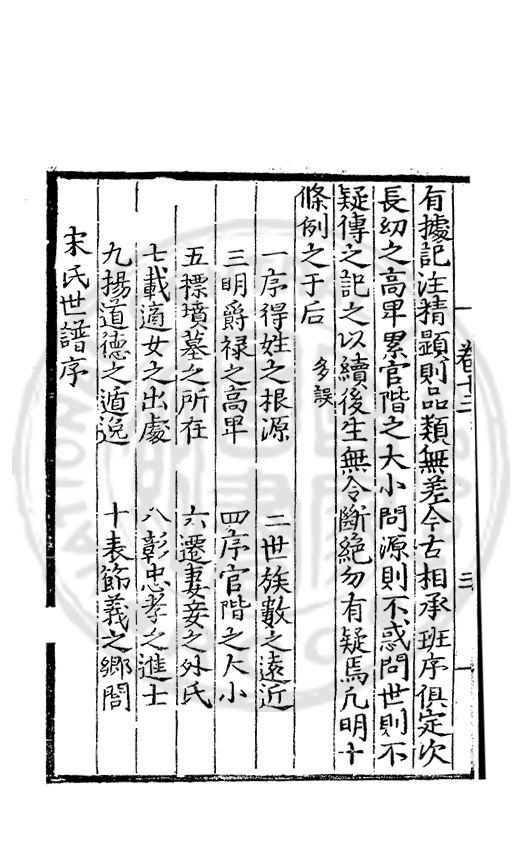 卷十三　三
有據記注精顯則品類無差今古相承班序俱定次
長幼之高卑累官階之大小問源則不惑問世則不
疑傳之記之以續後生無令斷絕勿有疑焉凡明十
條例之于后　多誤
一序得姓之根源　二世族數之遠近
三明爵祿之高卑　四序官階之大小
五摽墳墓之所在　六遷妻妾之外氏
七載適女之出處　八彰忠孝之進士
九揚道德之遁逸　十表節義之鄉閭
宋氏世譜序